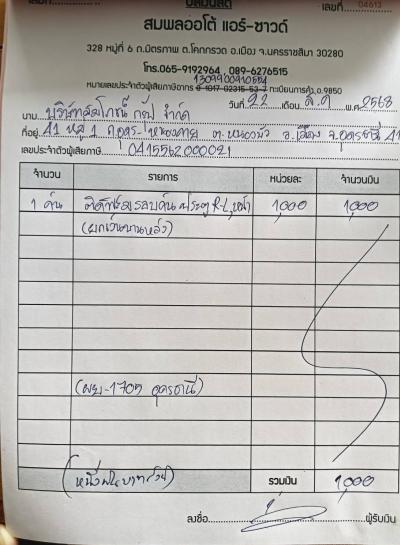 บิลเงินสด
เลขที่ 04613
สมพลออโต้ แอร์-ซาวด์
328 หมู่ที่ 6 ถ.มิตรภาพ ต.โคกกรวด อ.เมือง จ.นครราชสีมา 30280
โทร.065-9192964 , 089-6276515
หมายเลขประจำตัวผู้เสียภาษีอากร ทะเบียนการค้า อ.9850
วันที่ 22 เดือน ส.ค พ.ศ. 2568
นาม บริษัท กรุ๊ป จำกัด
ที่อยู่ 41 หมู่ 1 ต.หนองบัว อ.เมือง จ.อุดรธานี 41
เลขประจำตัวผู้เสียภาษี 0415562000021
จำนวน รายการ หน่วยละ จำนวนเงิน
1 คัน ติดฟิล์มรอบคัน ประตู R-L, หน้า 1,000 1,000
(ยกเว้นบานหลัง)
(ผย-1705 อุดรธานี)
(หนึ่งพันบาทถ้วน) รวมเงิน 1,000
ลงชื่อ ผู้รับเงิน